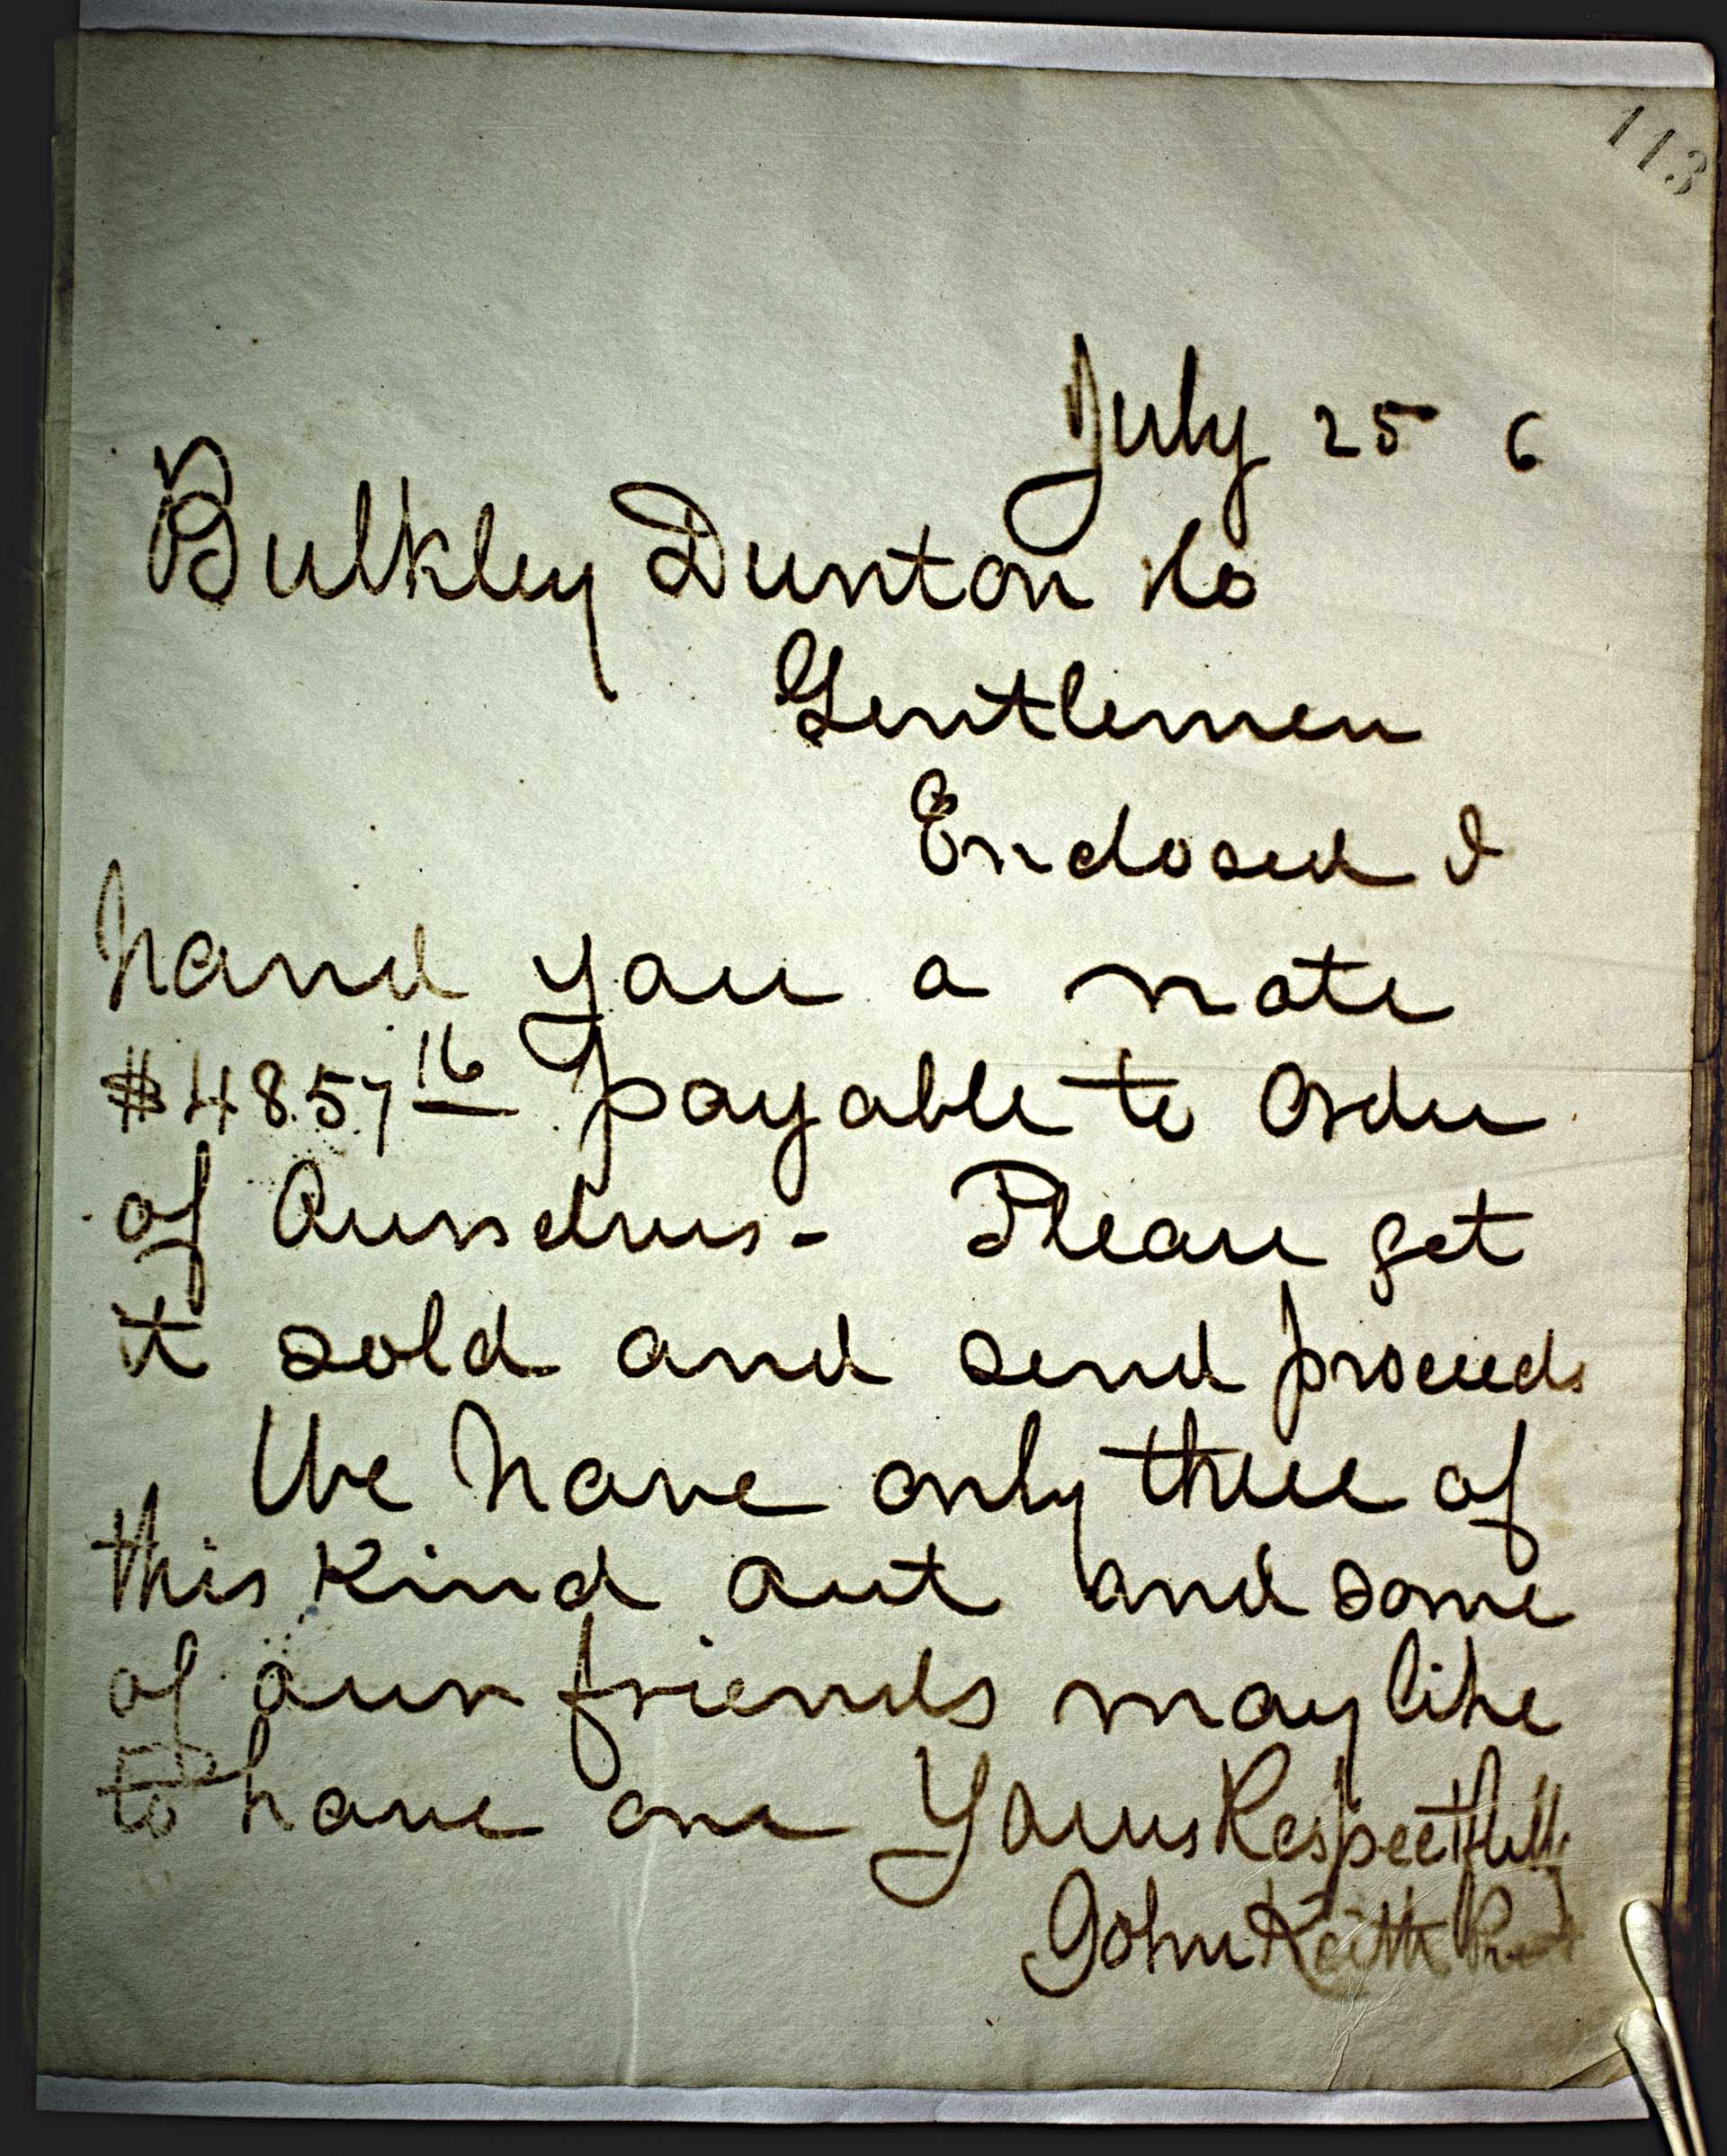 113
July 25 6
Bulkley Dunton & Co
Gentlemen
Enclosed I
hand you a note
$4857 16 payable to order
of Ourselves - Please get
it sold and send proceeds
We have only three of
this kind out and some
of our friends may like
to have one Yours Respectfully
John Keith